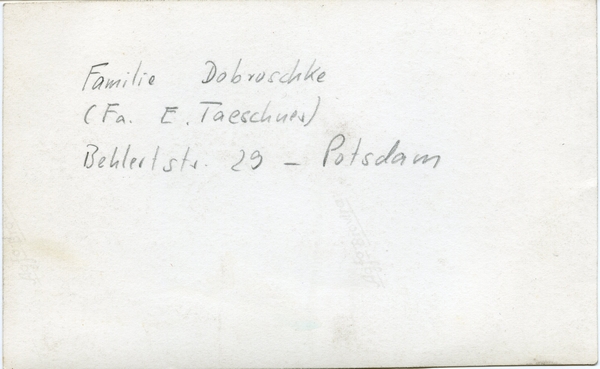 Familie Dobroschke
(Fa. E. Taeschner)
Behlertstr. 29 – Potsdam